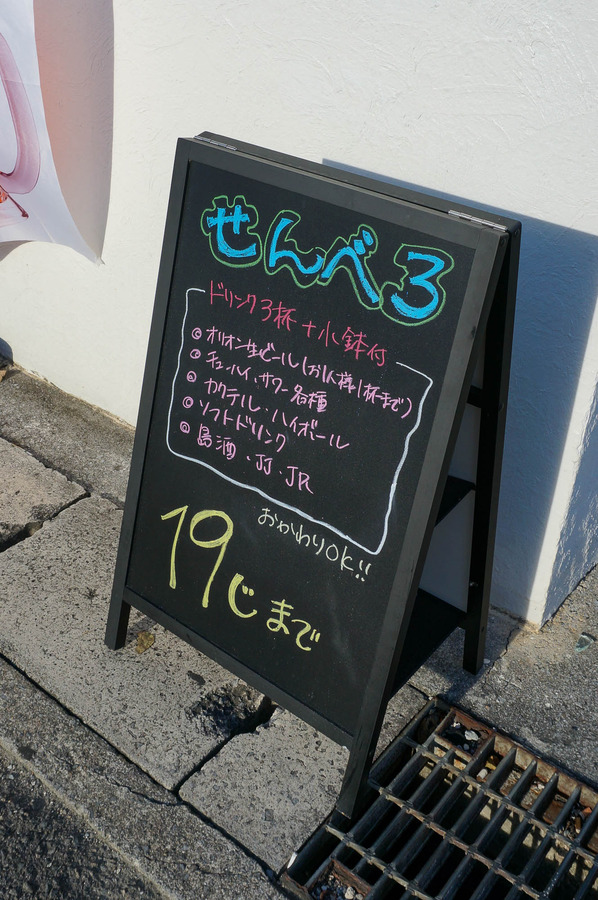 せんべろ
ドリンク3杯+小鉢付
◎オリオン生ビール(お1人様1杯まで)
◎チューハイ、サワー各種
◎カクテル・ハイボール
◎ソフトドリンク
◎島酒・JJ・JR
おかわりOK!!
19じまで